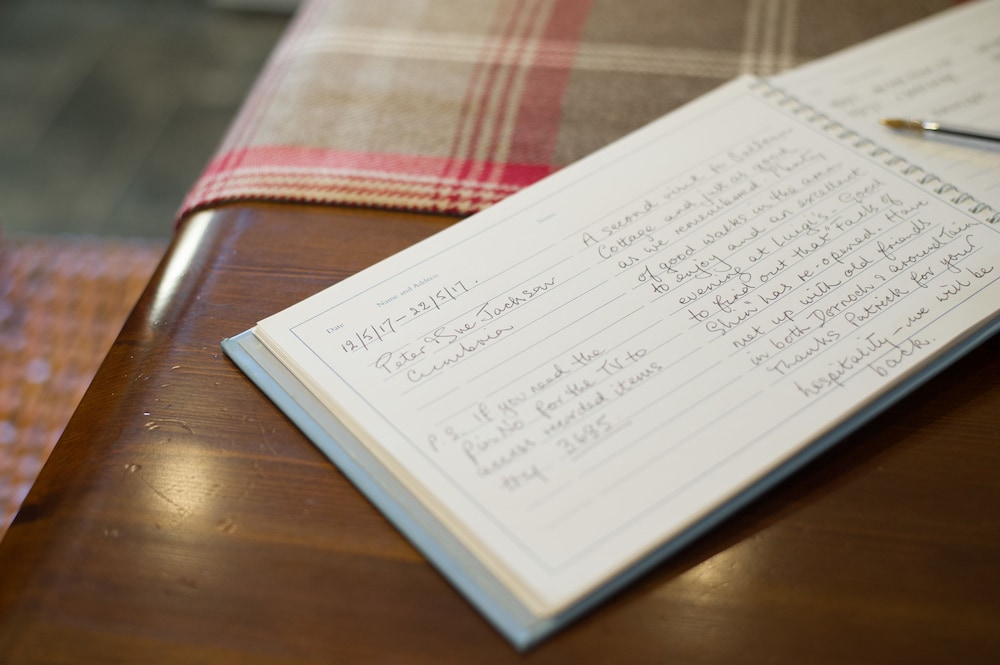 Date
Name and Address
12/5/17 - 22/5/17.
Peter & Sue Jackson
Cumbria
P.S. If you need the
Pin No for the TV to
access recorded items
try 3685
A second visit to
Cottage and just as good
as we remembered. Plenty
of good walks in the area
to enjoy and an excellent
evening at Luigi's - Good
to find out that "Falls of
Shin" has re-opened. Have
met up with old friends
in both Dornoch & around Tain
Thanks Patrick for your
hospitality - we will be
back.